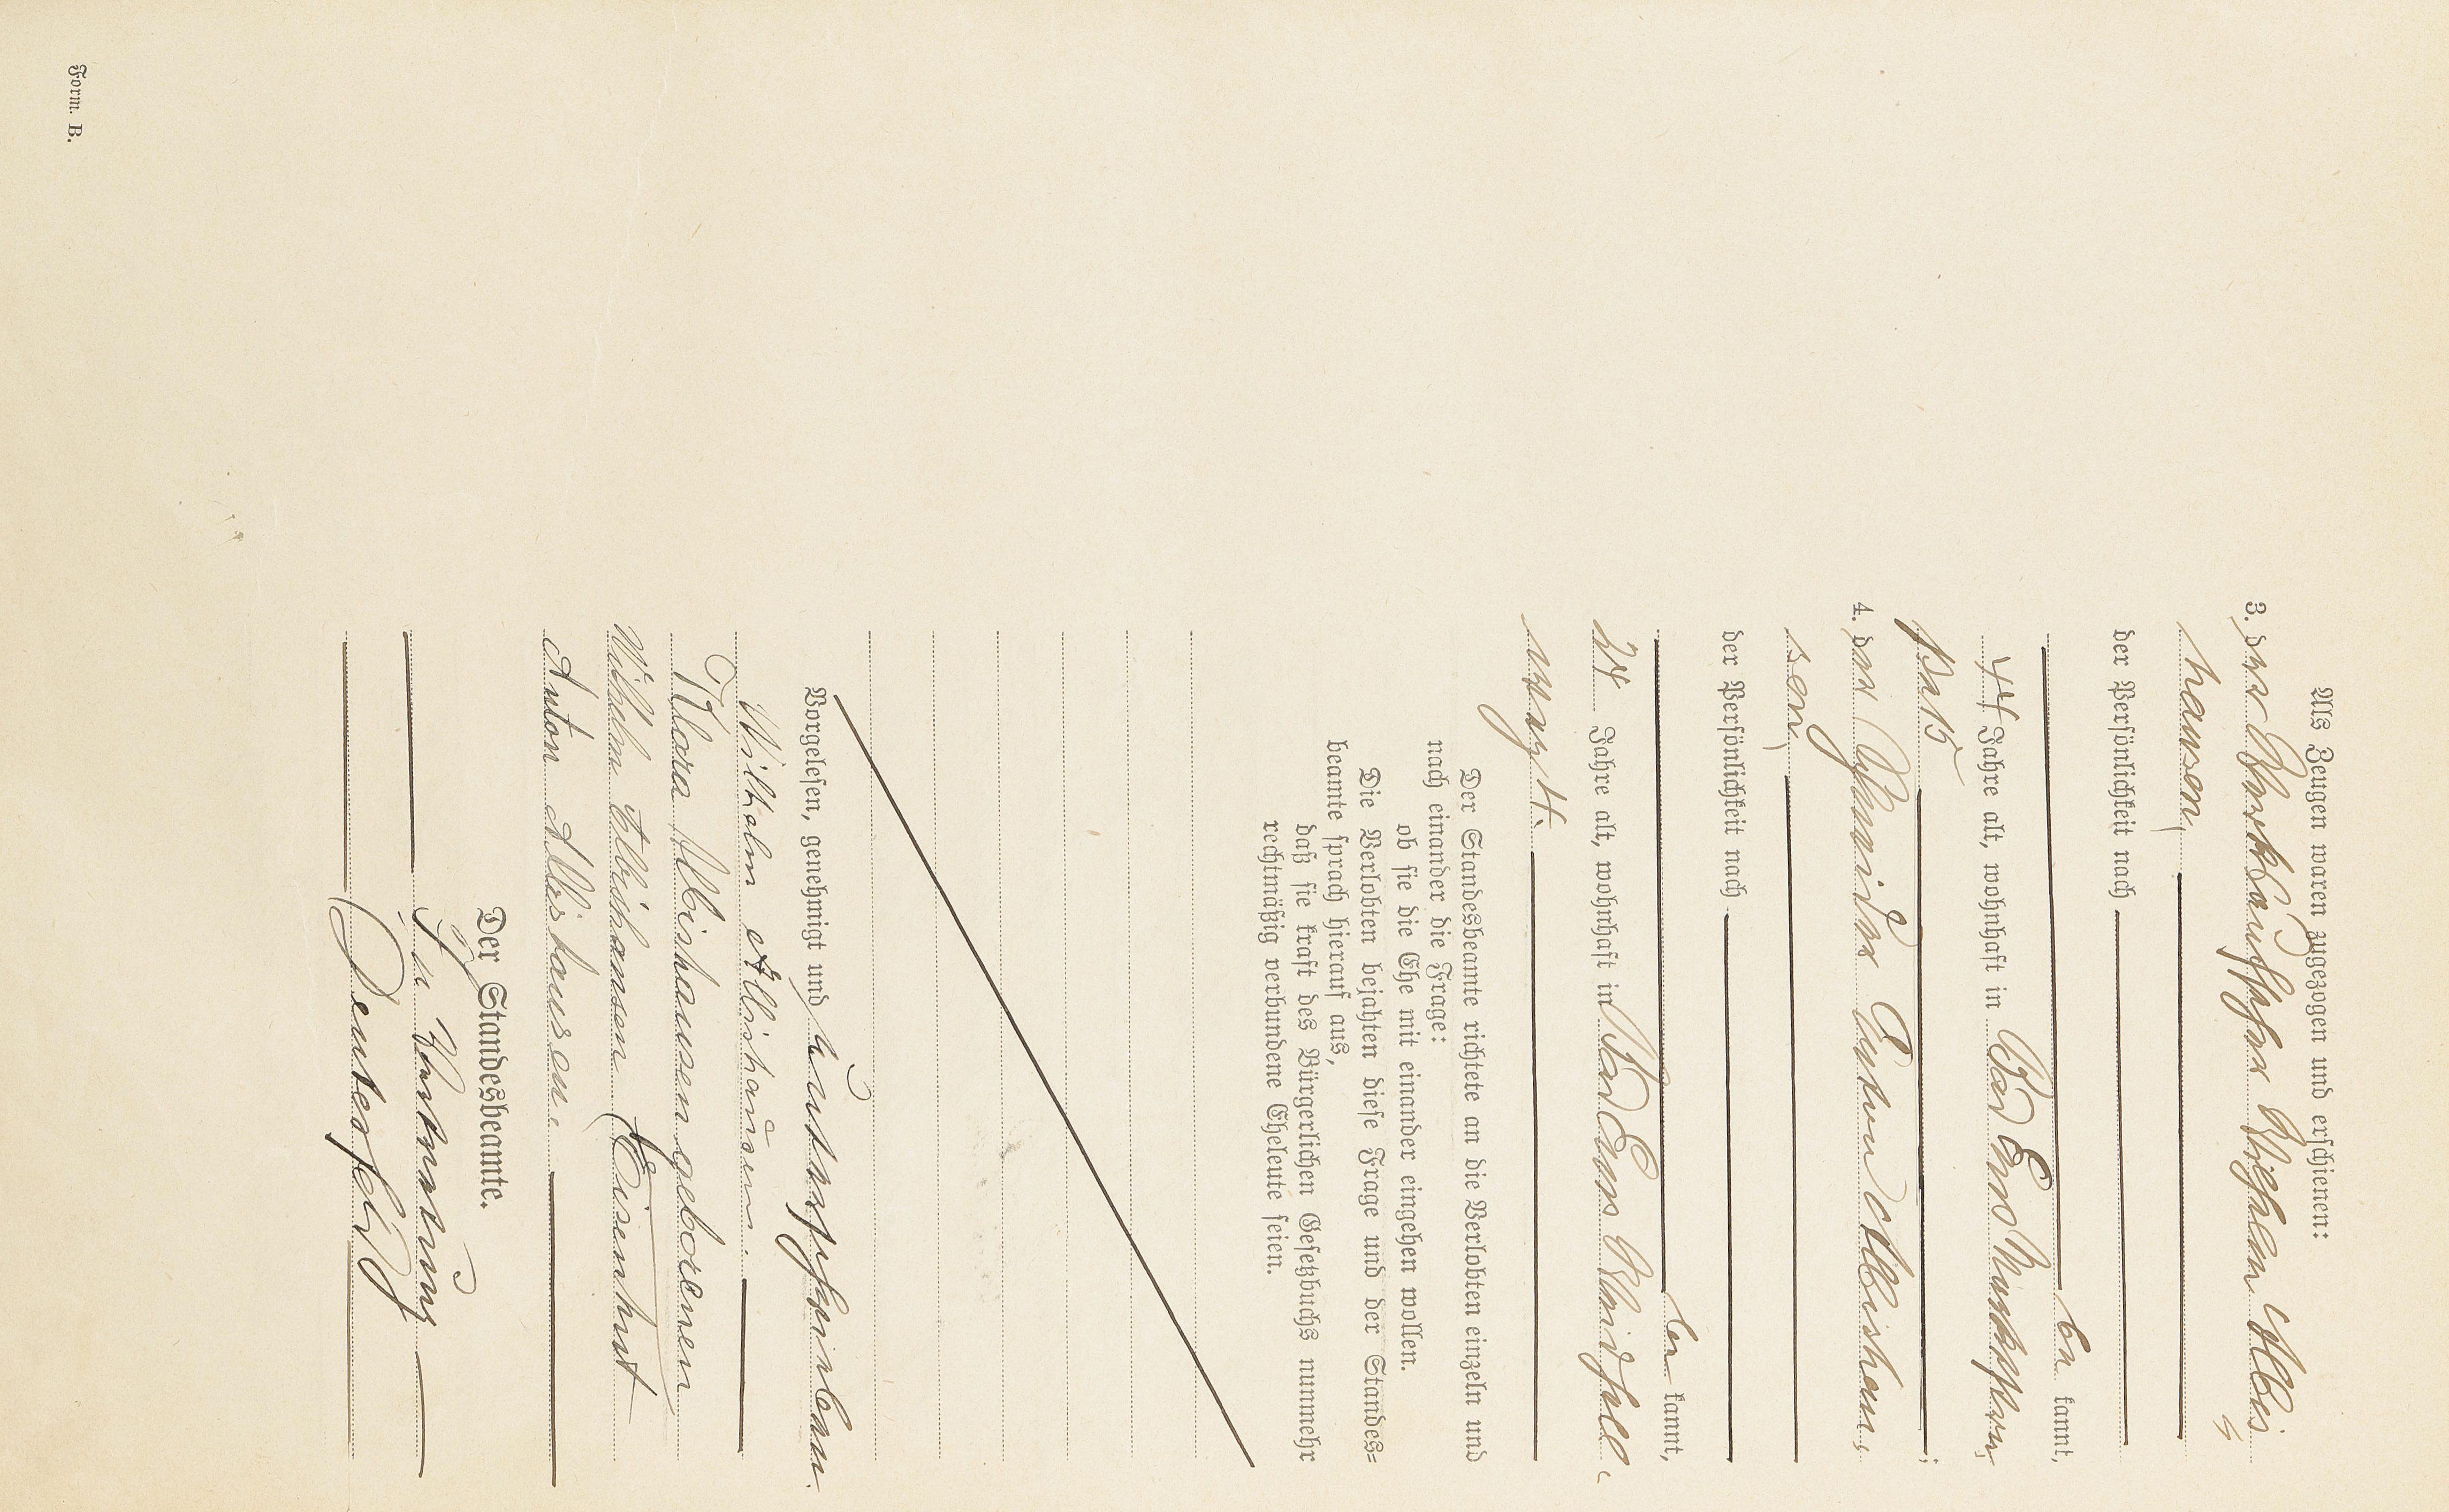 Als Zeugen waren zugezogen und erschienen:
3. der Wilhelm Albis=
hausen,
der Persönlichkeit nach
be kannt,
44 Jahre alt, wohnhaft in Bad Ems
;
4. der Schneider Anton Albishau=
sen,
der Persönlichkeit nach
be kannt,
24 Jahre alt, wohnhaft in Bad Ems
Der Standesbeamte richtete an die Verlobten einzeln und
nach einander die Frage:
ob sie die Ehe mit einander eingehen wollen.
Die Verlobten bejahten diese Frage und der Standes=
beamte sprach hierauf aus,
daß sie kraft des Bürgerlichen Gesetzbuchs nunmehr
rechtmäßig verbundene Eheleute seien.
Vorgelesen, genehmigt und unterschrieben
Wilhelm Albishausen.
Klara Albishausen geborenen
Wilhelm Albishausen
Anton Albishausen.
Der Standesbeamte.
In Vertretung
Form. B.